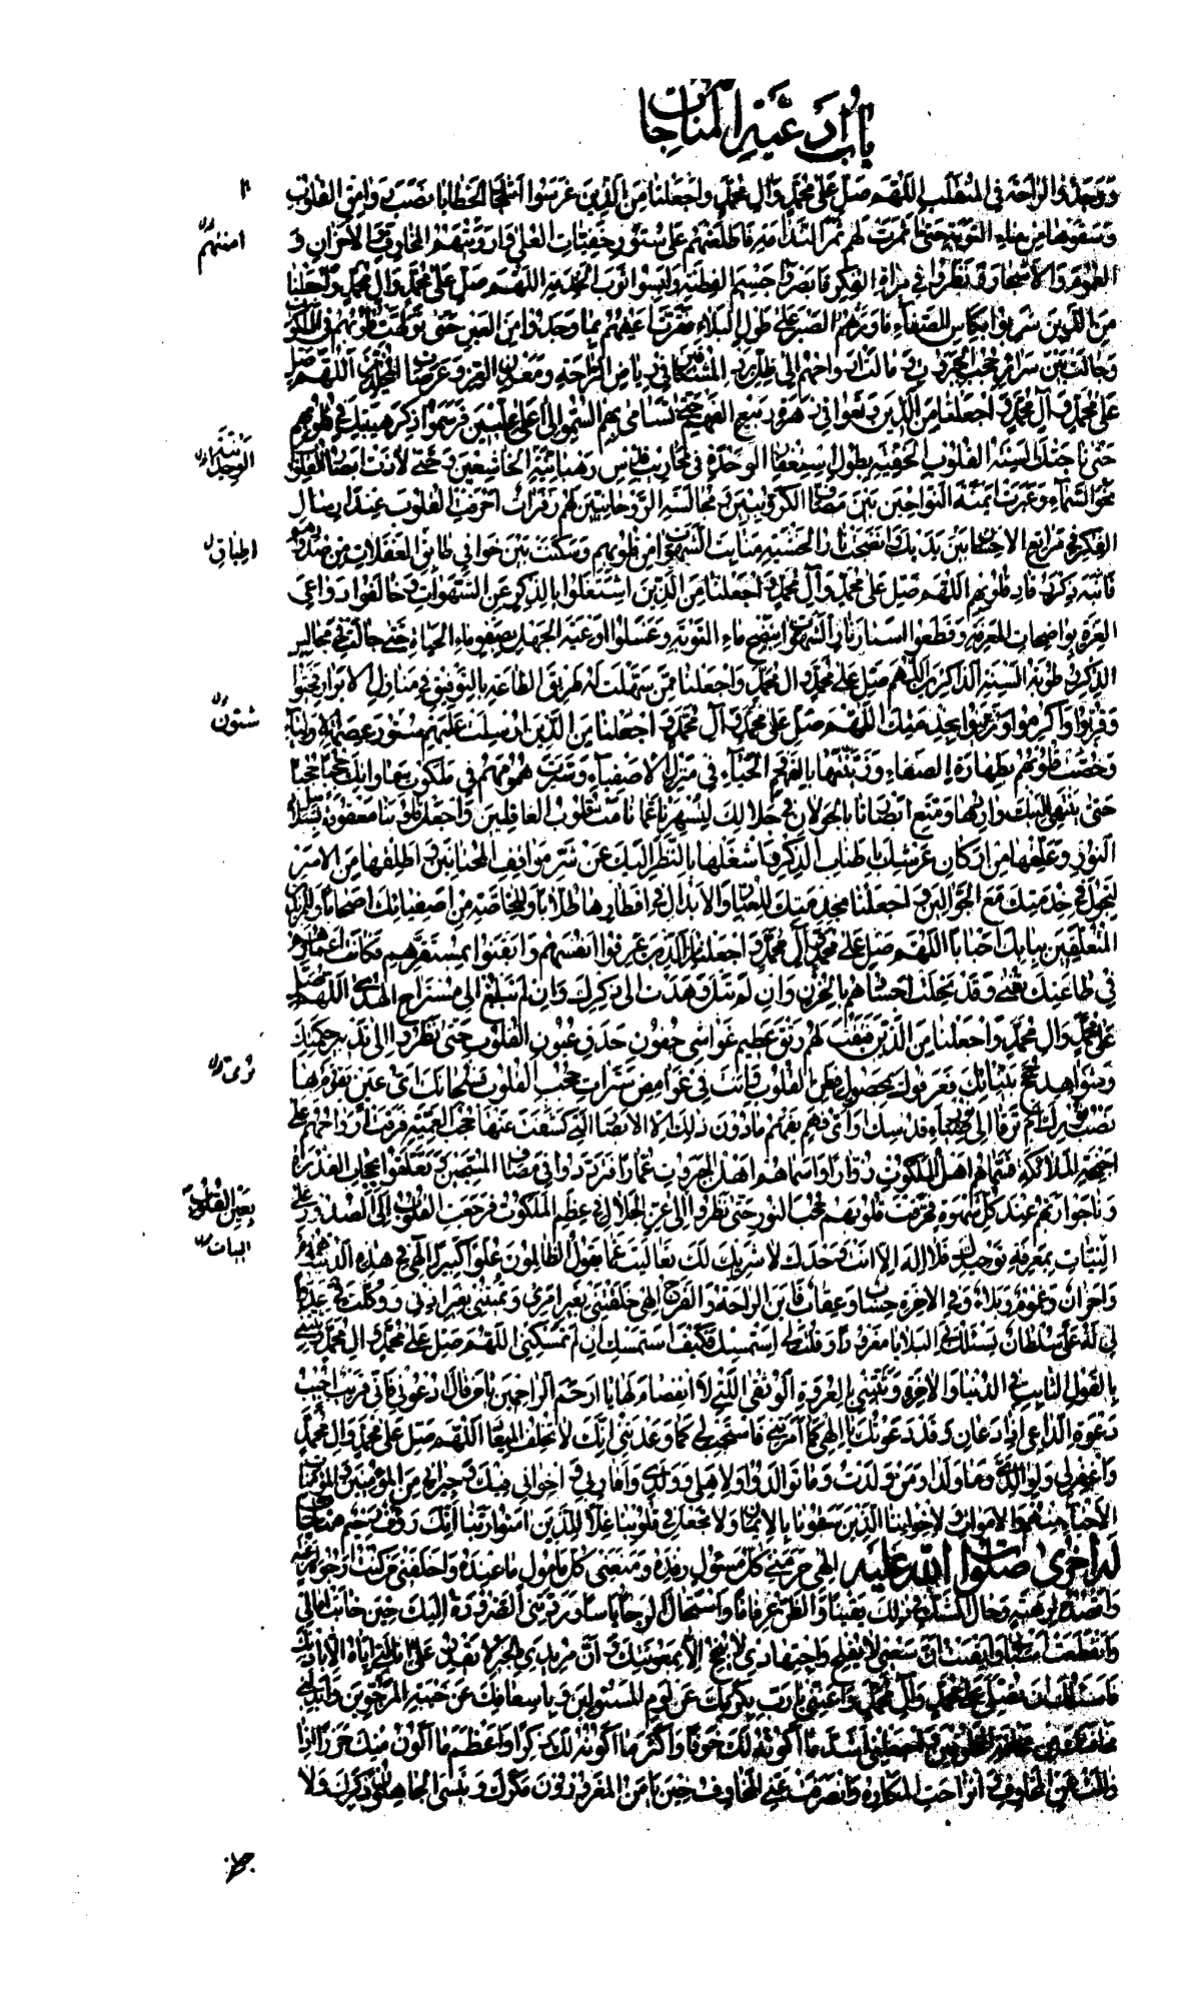 باب ادعية المناجات
ووجدوا الراحة في المنقلب اللهم صل على محمد وآل محمد واجعلنا من الذين غرسوا اشجار الخطايا نصب روامق القلوب
وسقوها من ماء التوبة حتى اثمرت لهم ثمر الندامة فاطلعتهم على ستور خفيات العلى وارؤ منهم المخاوف والاحزان و
الغموم والاشجار ونظروا في مرآة الفكر فابصروا جسيم الفطنة ولبسوا ثوب الخدمة اللهم صل على محمد وآل محمد واجعلنا
من الذين شربوا بكاس الصفاء فاورثهم الصبر على طول البلاء فقرت اعينهم بما وجدوا من العين حتى تولهت قلوبهم في الملكوت
وجالت بين سرائر حجب الجبروت ومالت ارواحهم الى ظل برد المشتاقين في رياض الراحة ومعدن العز وعرصات المخلدين اللهم صل
على محمد وآل محمد واجعلنا من الذين رتعوا في زهرة ربيع الفهم حتى تسامى بهم السمو الى اعلى عليين فرسموا ذكر هيبتك في قلوبهم
حتى ناجتك السنة القلوب الخفية بطول استغفار الوحدة في محاريب قدس رهبانية الخاشعين وحتى لاذت ابصار القلوب
نحو السماء وعبرت ائمة النواحين بين مصاف الكروبيين ومجالسة الروحانيين لهم زفرات احرقت القلوب عند ارسال
الفكر في مراتع الاحسان بين يديك وانضجت نار الخشية منابت الشهوات من قلوبهم وسكنت بين خوافي طابق الغفلات من
اللهم صل على محمد وآل محمد واجعلنا من الذين اشتغلوا بالذكر عن الشهوات وخالفوا دواعي
العزة بواضحات المعرفة وقطعوا استار نار الشهوات بنضح ماء التوبة وغسلوا اوعية الجهل بصفو ماء الحياة حتى جالت في مجالس
الذكر رطوبة السنة الذاكرين اللهم صل على محمد وآل محمد واجعلنا ممن سهلت له طريق الطاعة بالتوفيق في منازل الابرار فحيوا
وقربوا واكرموا وزينوا بخدمتك اللهم صل على محمد وآل محمد واجعلنا من الذين ارسلت عليهم ستور عصمة الاولياء
وخصصت قلوبهم بطهارة الصفاء وزينتها بالفهم والحياء في منزل الاصفياء وسيرت همومهم في ملكوت سماواتك حجبا حجبا
حتى ينتهي اليك واردها ومتع ابصارنا بالجولان في جلالك لتسهرنا عما نامت قلوب الغافلين واجعل قلوبنا معقودة بسلاسل
النور وعلقها من اركان عرشك باطناب الذكر واشغلها بالنظر اليك عن شر مواقف المختانين واطلقها من الاسر
لتجول في خدمتك مع الجوالين واجعلنا بخدمتك للعباد والابدال في اقطارها طلابا وللخاصة من اصفيائك اصحابا وللمريدين
المتعلقين ببابك احبابا اللهم صل على محمد وآل محمد واجعلنا من الذين عرفوا انفسهم وايقنوا بمستقرهم فكانت اعمارهم
في طاعتك تفنى وقد نحلت اجسادهم بالحزن وان لم تبل وهدت الى ذكرك وان لم تبلغ الى مستراح الهدى اللهم صل
على محمد وآل محمد واجعلنا من الذين فتقت لهم رتق عظيم غواشي جفون حدق عيون القلوب حتى نظروا الى تدبير حكمتك
وشواهد حجج بيناتك فعرفوك بمحصول فطن القلوب وانت في غوامض سترات حجب القلوب فسبحانك اي عين تقوم بها
نصب نورك ام ترقأ الى نور ضياء قدسك او اي فهم يفهم ما دون ذلك الا الابصار التي كشفت عنها حجب العمية فرقت ارواحهم على
اجنحة الملائكة فسماهم اهل الملكوت زوارا واسماهم اهل الجبروت عمارا فترددوا في مصاف المسبحين وتعلقوا بحجاب القدرة
وناجوا ربهم عند كل شهوة فحرقت قلوبهم حجب النور حتى نظروا الى عز الجلال في عظم الملكوت فرجعت القلوب الى الصدور على
النيات بمعرفة توحيدك فلا اله الا انت وحدك لا شريك لك تعاليت عما يقول الظالمون علوا كبيرا الهي في هذه الدنيا هموم
واحزان وغموم وبلاء وفي الاخرة حساب وعقاب فاين الراحة والفرج الهي خلقتني بغير امري وتميتني بغير اذني ووكلت في عدوا
لي له علي سلطان يسلك بي البلايا مغرورا وقلت لي استمسك فكيف استمسك ان لم تمسكني اللهم صل على محمد وآل محمد وثبتني
بالقول الثابت في الدنيا والاخرة وثبتني بالعروة الوثقى التي لا انفصام لها يا ارحم الراحمين يا من قال ادعوني فاني قريب اجيب
دعوة الداعي اذا دعان وقد دعوتك يا الهي كما امرتني فاستجب لي كما وعدتني انك لا تخلف الميعاد اللهم صل على محمد وآل محمد
واغفر لي ولوالدي وما ولدا ومن ولدت وما توالدوا ولاهلي وولدي واقاربي واخواني فيك وجيراني من المؤمنين والمؤمنات
الاحياء منهم والاموات ولاخواننا الذين سبقونا بالايمان ولا تجعل في قلوبنا غلا للذين امنوا ربنا انك رؤف رحيم مناجاة
له اخرى صلوات الله عليه الهي حرمني كل مسئول رفده ومنعني كل مامول ما عنده واخلفني من كنت ارجوه لرغبة
واقصده لرهبة وحال الشك في ذلك يقينا والظن عرفانا واستحال الرجاء ياسا وردتني الضرورة اليك حين خابت امالي
وانقطعت اسبابي وايقنت ان سعيي لا يفلح واجتهادي لا ينجح الا بمعونتك وان مريدي بالخير لا يقدر على انالتي اياه الا باذنك
فاسئلك ان تصلي على محمد وآل محمد واغنني يا رب بكرمك عن لؤم المسئولين وباسعافك عن خيبة المرجوين وابدلني
مخافتك من مخافة المخلوقين واجعلني اشد ما اكون لك خوفا واكثر ما اكون لك ذكرا واعظم ما اكون منك حرزا اذا
زالت عني المخاوف وانزاحت المكاره وانصرفت عني المخاوف حين يامن المغرورون مكرك وينسى الجاهلون ذكرك ولا
امنتهم
الوحدانية
اطباق
شئون
نور
بعين القلوب
البيات